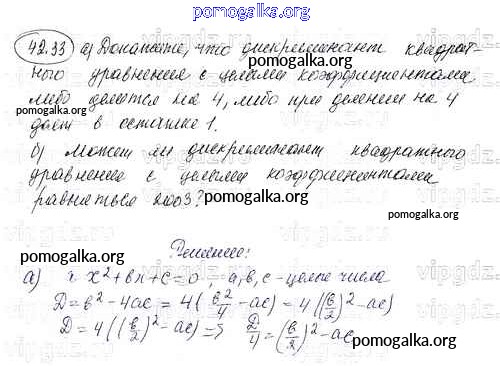 pomogalka.org
42.33 а) Докажите, что дискриминант квадрат-
ного уравнения с целыми коэффициентами
либо делится на 4, либо при делении на 4
дает в остатке 1.
б) Может ли дискриминант квадратного
уравнения с целыми коэффициентами
равняться 2003?
Решение:
а) ax²+bx+c=0, a,b,c - целые числа
D=b²-4ac = 4(b²/4 -ac) = 4((b/2)²-ac)
D = 4((b/2)²-ac) => D/4 = (b/2)²-ac
pomogalka.org
pomogalka.org
pomogalka.org
pomogalka.org
pomogalka.org
pomogalka.org
pomogalka.org
pomogalka.org